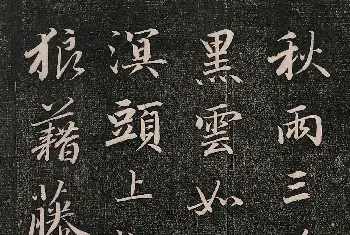 秋雨三
黑雲如
溟頭上
狼藉藤